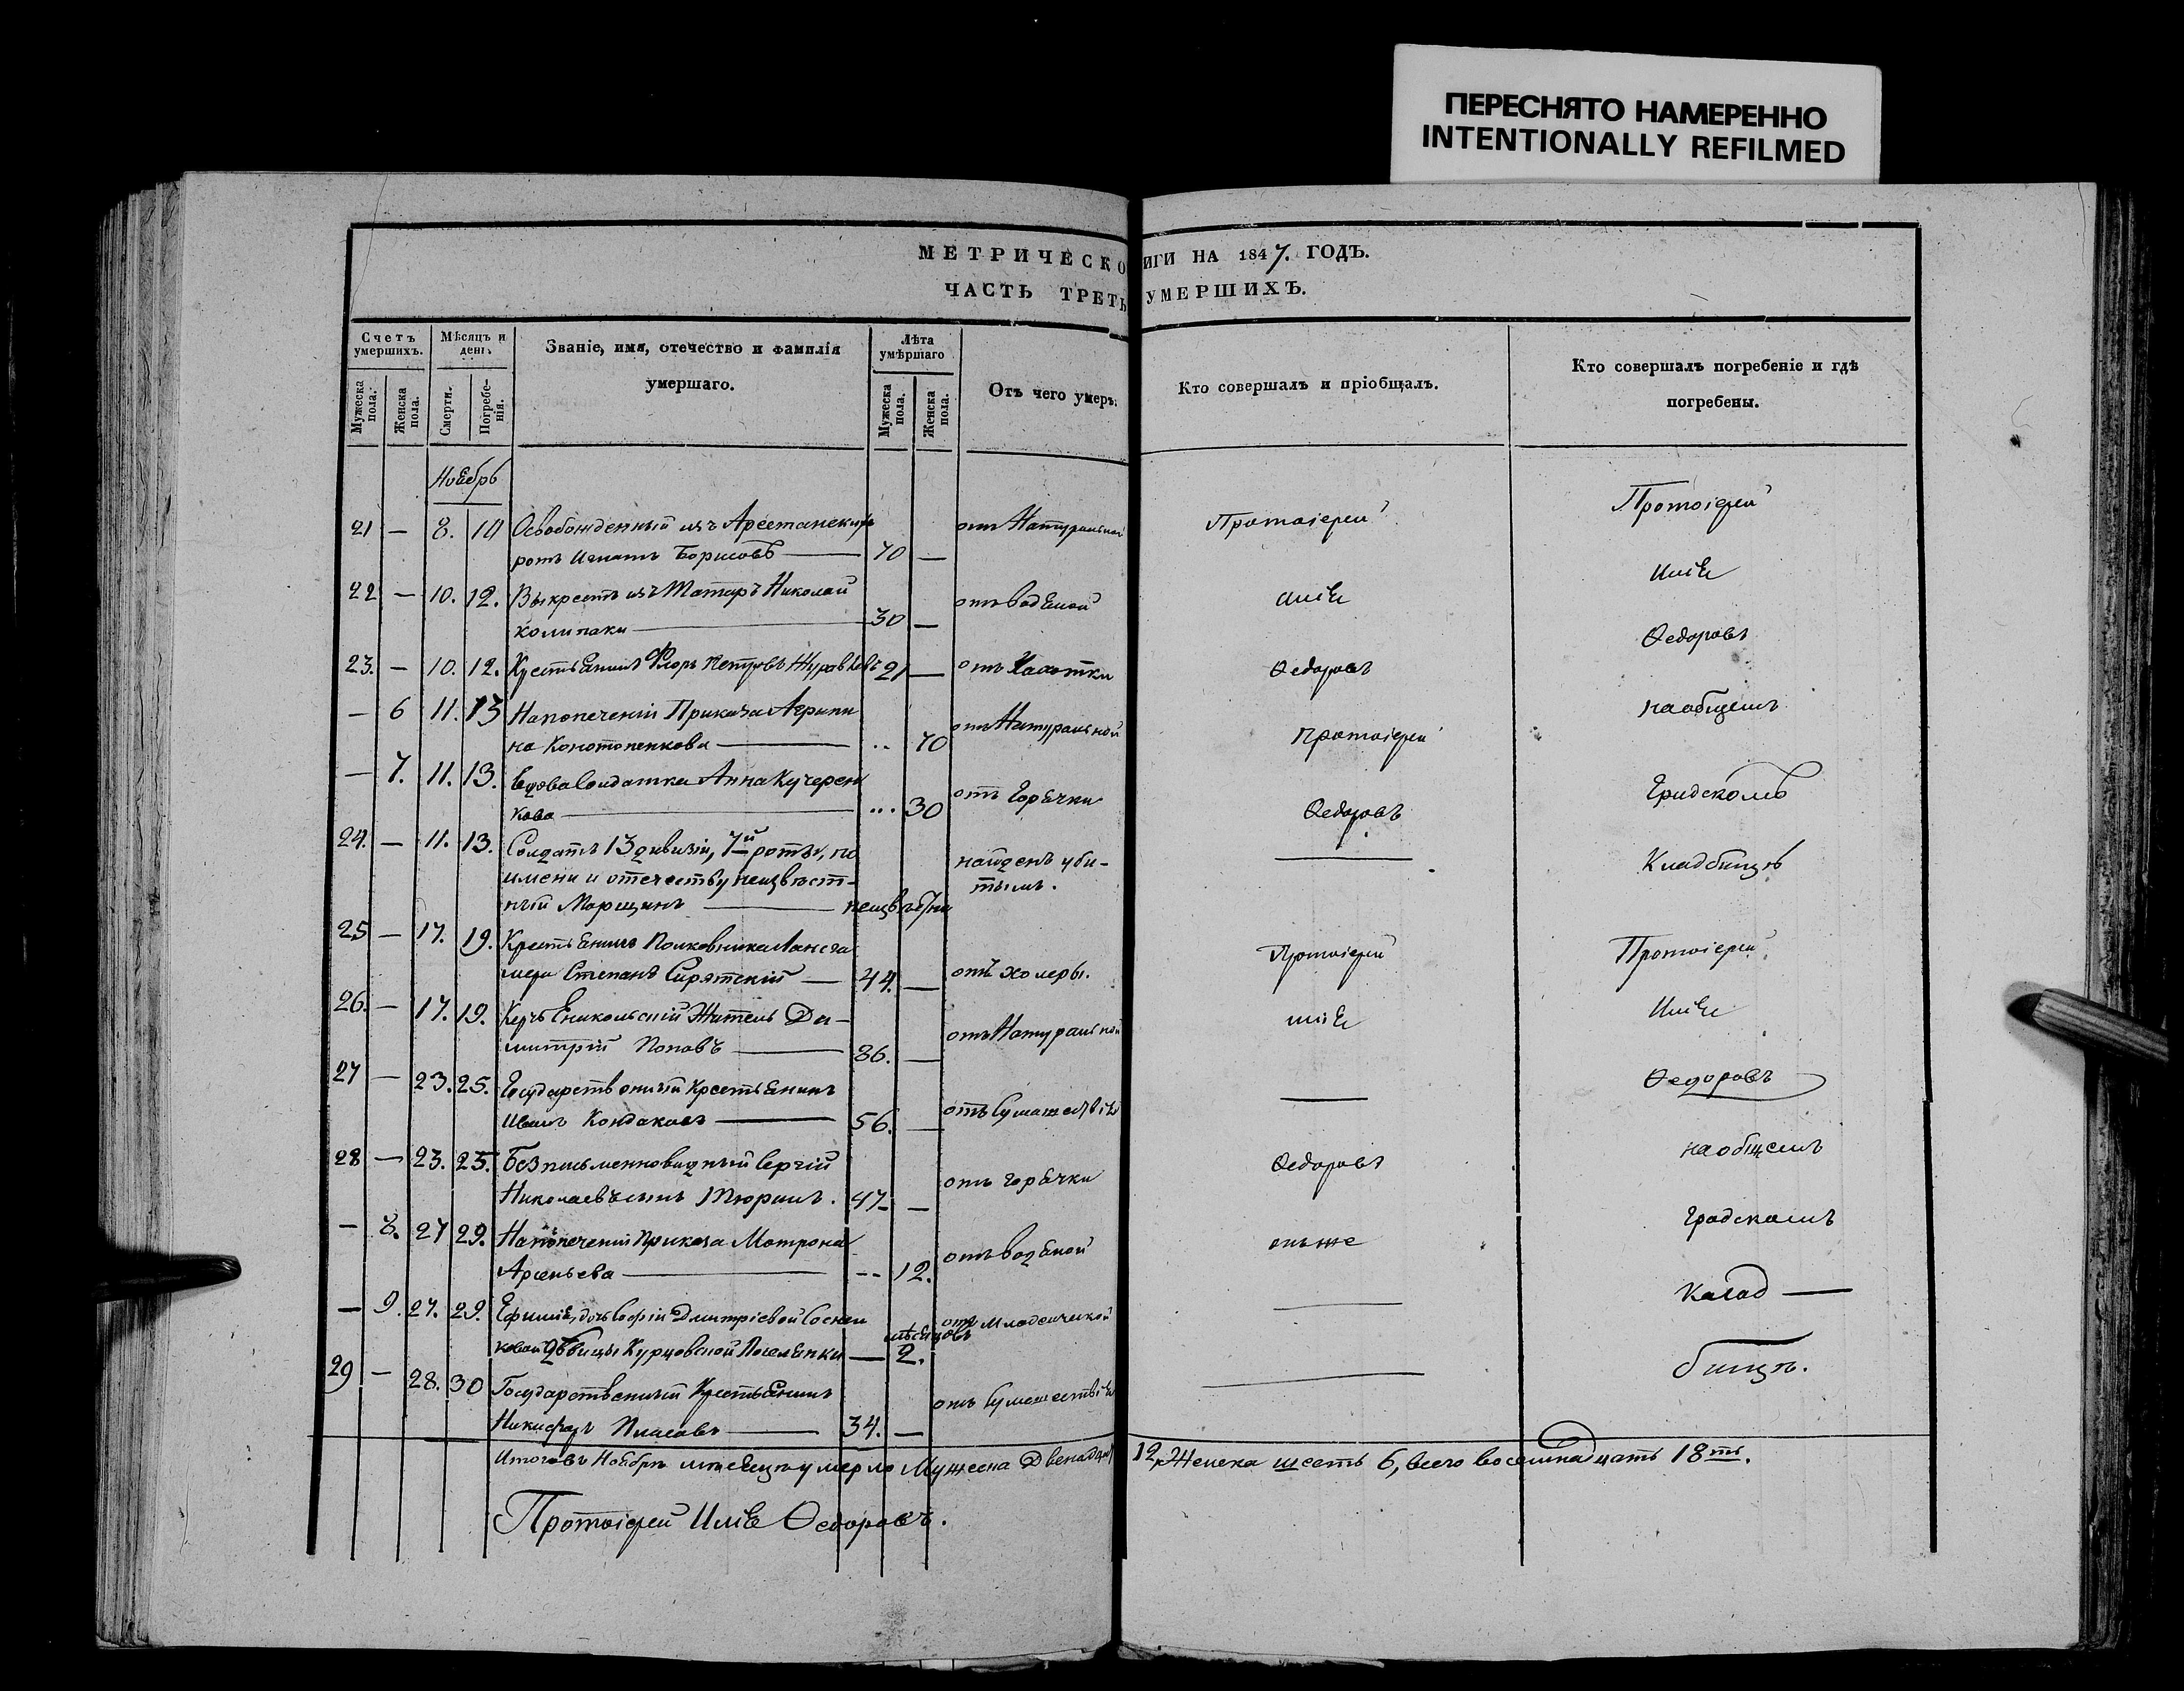 ПЕРЕСНЯТО НАМЕРЕННО
INTENTIONALLY REFILMED
МЕТРИЧЕСКО ИГИ НА 1847. ГОДЪ.
ЧАСТЬ ТРЕТЬ УМЕРШИХЪ.
Счетъ умершихъ.
Мужеска пола.
Женска пола.
Мѣсяцъ и день.
Смерти.
Погребенія.
Званіе, имя, отечество и фамилія
умершаго.
Лѣта умѣршаго
Мужеска пола.
Женска пола.
Отъ чего умеръ.
Кто совершалъ и пріобщалъ.
Кто совершалъ погребеніе и гдѣ
погребены.
Ноябрь
21 — 8. 10 Освобожденный изъ Арестанскихъ отъ Натуральной Протоіерей Протоіерей
ротъ Игнатъ Борисовъ — 70 —
22 — 10. 12. Выкрестъ изъ Татаръ Николай отъ водяной Илія Илія
колипаки — 30 —
23. — 10. 12. Крестьянинъ Флоръ Петровъ Журавлевъ 21 — отъ Чахотки Ѳедоровъ Ѳедоровъ
— 6 11. 13 На попеченіи Приказа Агрипи отъ Натуральной Протоіерей на общемъ
на Конотопенкова — .. 70
— 7. 11. 13. Вдова Солдатка Анна Кучерен отъ Горячки Ѳедоровъ Градскомъ
кова — ... 30
24. — 11. 13. Солдатъ 13 дивизіи, 7й роты, по найденъ уби- — Кладбищѣ
имени и отечеству неизвѣст- тымъ.
ный Марщинъ — неизвѣстны
25 — 17. 19. Крестьянинъ Полковника Ланега Протоіерей Протоіерей
мера Степанъ Сирятскій — 44. — отъ холеры.
26. — 17. 19. Керчь Еникольскій Житель Ди- отъ Натуральной Илія Илія
митрій Поповъ — 86. —
27 — 23. 25. Государственный Крестьянинъ отъ Сумашествія — Ѳедоровъ
Иванъ Кондаковъ — 56. —
28 — 23. 25. Безписьменновидный Сергій отъ горячки Ѳедоровъ на общемъ
Николаевъ сынъ Тюринъ. 47 —
— 8. 27 29. На попеченіи Приказа Матрона отъ водяной онъ же Градскомъ
Арсеньева — -- 12.
— 9. 27. 29. Ефимія, дочь Софіи Дмитріевой отъ Младенческой — Клад —
ковой дѣвицы Курцовской Поселянки — мѣсяцовъ 2.
29 — 28. 30 Государственный Крестьянинъ отъ Сумашествія — бищѣ.
Никифоръ Власовъ — 34. —
Итого въ Ноябрѣ мѣсяцѣ умерло Мужеска Двенадцать 12, Женска шесть 6, всего восемнадцать 18ть.
Протоіерей Илія Ѳедоровъ.